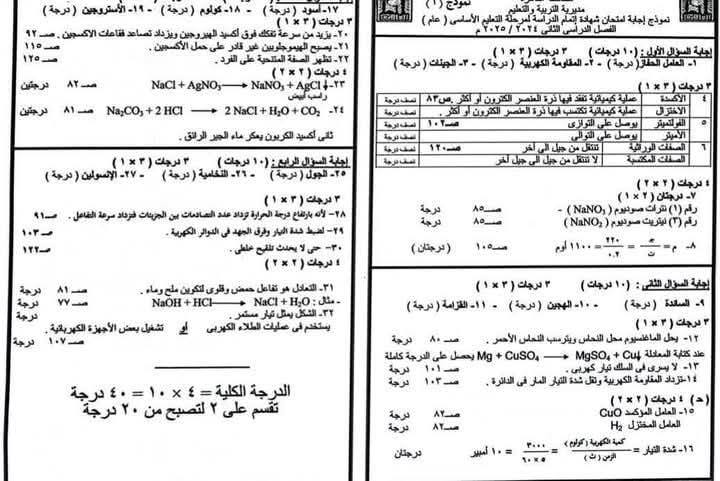 مديرية التربية والتعليم
نموذج ( ١ )
نموذج إجابة امتحان شهادة إتمام الدراسة لمرحلة التعليم الأساسي ( عام )
الفصل الدراسى الثانى ٢٠٢٤ / ٢٠٢٥ م
إجابة السؤال الأول : (١٠ درجات ) ٣ درجات ( ٣ × ١ )
١- العامل الحفاز( درجة ) -٢ المقاومة الكهربية ( درجة ) -٣ الجينات ( درجة )
٣ درجات ( ٣ × ١ )
٤ الأكسدة عملية كيميائية تفقد فيها ذرة العنصر إلكترون أو أكثر .ص٨٣ نصف درجة
الاختزال عملية كيميائية تكتسب فيها ذرة العنصر إلكترون أو أكثر . نصف درجة
٥ الفولتميتر يوصل على التوازى صــ١٠٢ نصف درجة
الأميتر يوصل على التوالى نصف درجة
٦ الصفات الوراثية تنتقل من جيل الى آخر صــ١٢٠ نصف درجة
الصفات المكتسبة لا تنتقل من جيل الى جيل آخر نصف درجة
٤ درجات ( ٢ × ٢ )
٧- درجتان ( ٢ × ١ )
رقم (١) نترات صوديوم ( NaNO₃ ) - صــ٨٥ درجة
رقم (٢) نيتريت صوديوم ( NaNO₂ ) صــ٨٥ درجة
٨- م = ج/ت = ٢٢٠/٠.٢ = ١١٠٠ أوم صــ١٠٥ ( درجتان )
إجابة السؤال الثانى : (١٠ درجات ) ٣ درجات ( ٣ × ١ )
٩- السائدة ( درجة ) -١٠ الهجين ( درجة ) -١١ القزامة ( درجة )
٣ درجات ( ٣ × ١ )
١٢- يحل الماغنسيوم محل النحاس ويترسب النحاس الأحمر . صــ ٨٠ درجة
عند كتابة المعادلة Mg + CuSO₄ ⟶ MgSO₄ + Cu↓ يحصل على الدرجة كاملة
١٣- لا يسرى فى السلك تيار كهربى . صــ ١٠١ درجة
١٤-تزداد المقاومة الكهربية وتقل شدة التيار المار فى الدائرة . صــ ١٠٣ درجة
(د) ٤ درجات ( ٢×٢ )
١٥- العامل المؤكسد CuO صــ٨٢ درجة
العامل المختزل H₂ صــ٨٢ درجة
١٦- شدة التيار = كمية الكهربية (كولوم)/الزمن ( ث ) = ٣٠٠٠/٦٠×٥ = ١٠ أمبير درجتان
١٧- أسود ( درجة ) -١٨ كولوم ( درجة ) -١٩ الأستروجين ( درجة )
٣ درجات ( ٣ × ١ )
٢٠- يزيد من سرعة تفكك فوق أكسيد الهيدروجين ويزداد تصاعد فقاعات الاكسجين . صــ ٩٢
٢١- يصبح الهيموجلوبين غير قادر على حمل الأكسجين . صــ ١١٥
٢٢- تظهر الصفة المتنحية على الفرد . صــ ١٢٥
٤ درجات ( ٢ × ٢ )
٢٣- NaCl + AgNO₃ ⟶ NaNO₃ + AgCl↓ صــ ٨٢ درجتين
راسب أبيض
٢٤- Na₂CO₃ + 2 HCl ⟶ 2 NaCl + H₂O + CO₂ صــ ٨١ درجتين
ثانى أكسيد الكربون يعكر ماء الجير الرائق .
إجابة السؤال الرابع : (١٠ درجات ) ٣ درجات ( ٣ × ١ )
٢٥- الجول ( درجة ) -٢٦ النخامية ( درجة ) -٢٧ الإنسولين ( درجة )
٣ درجات ( ٣ × ١ )
٢٨- لأنه بارتفاع درجة الحرارة تزداد عدد التصادمات بين الجزيئات فتزداد سرعة التفاعل . صــ٩١
٢٩- لضبط شدة التيار وفرق الجهد في الدوائر الكهربية . صــ ١٠٣
٣٠- حتى لا يحدث تلقيح خلطى . صــ١٢٢
٤ درجات ( ٢ × ٢ )
٣١- التعادل هو تفاعل حمض وقلوى لتكوين ملح وماء . صــ ٨١ درجة
- مثال : NaOH + HCl ⟶ NaCl + H₂O صــ ٧٧ درجة
٣٢- الشكل يمثل تيار مستمر . درجة
يستخدم فى عمليات الطلاء الكهربى أو تشغيل بعض الأجهزة الكهربائية .
صــ ١٠٧ درجة
الدرجة الكلية = ٤ × ١٠ = ٤٠ درجة
تقسم على ٢ لتصبح من ٢٠ درجة